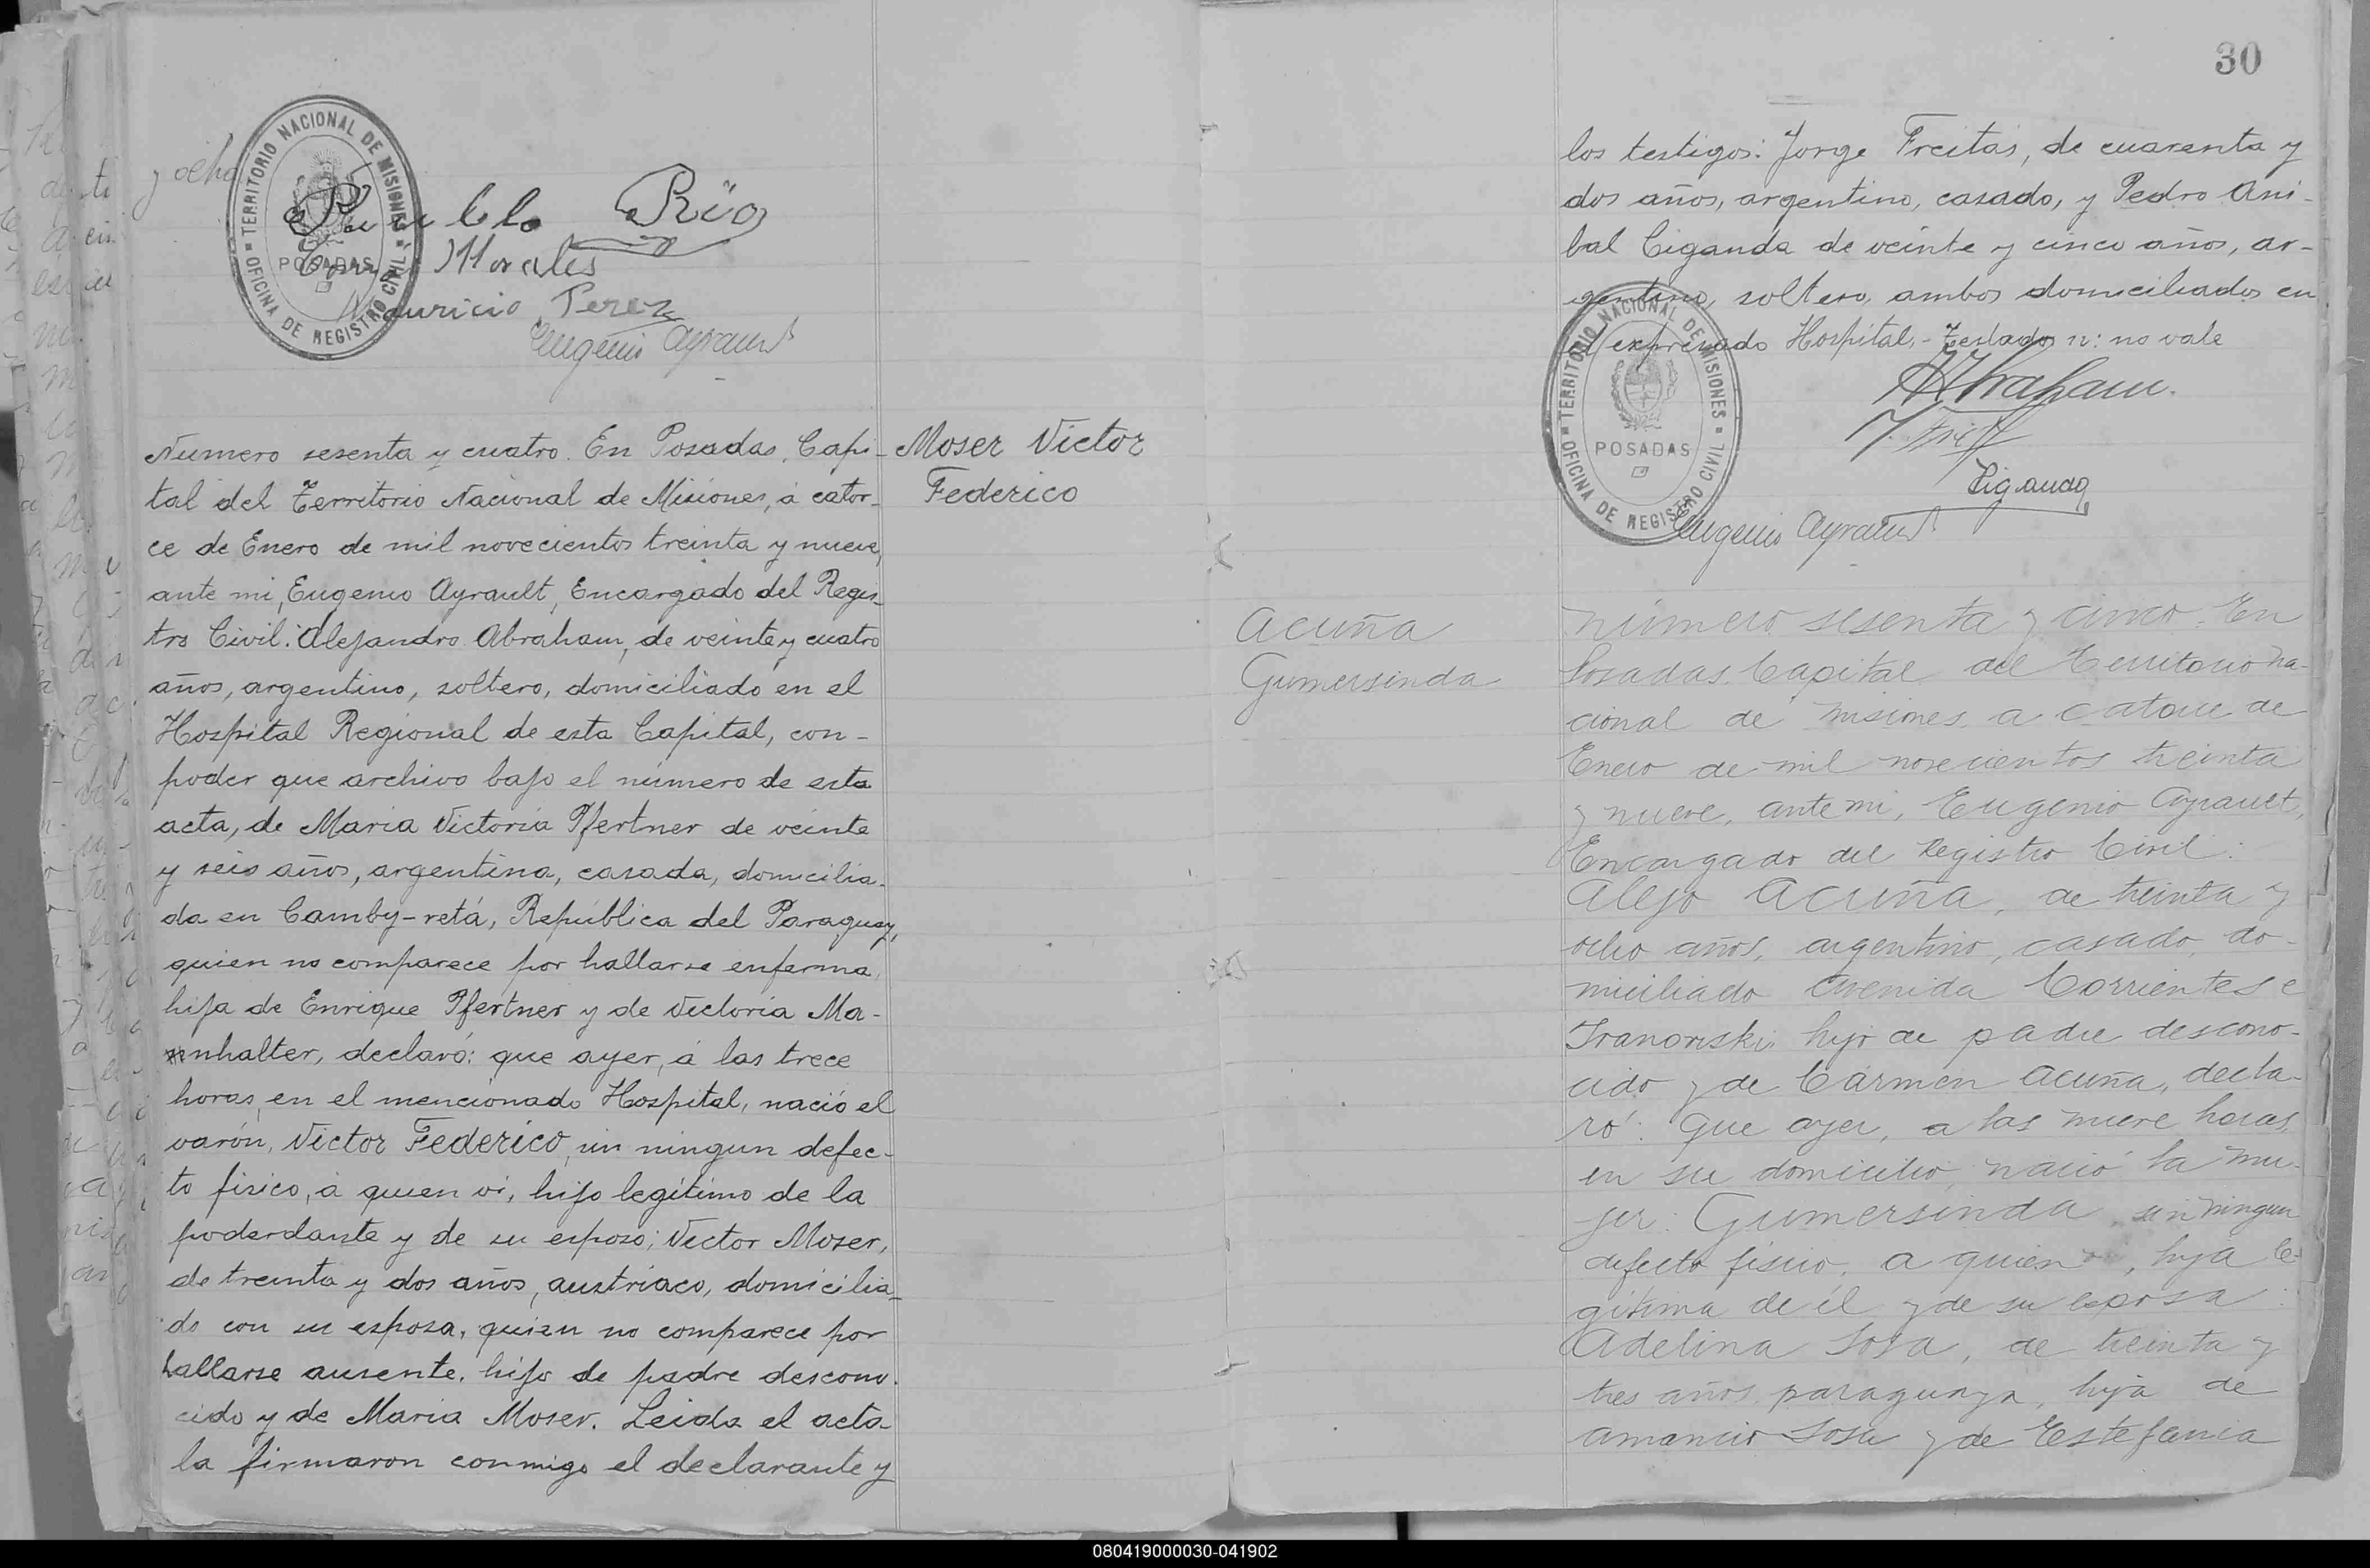 y ocho
Pablo Rios
Morales
Mauricio Perez
Eugenio Ayrault
TERRITORIO NACIONAL DE MISIONES
OFICINA DE REGISTRO CIVIL
POSADAS
Moser Victor
Federico
Numero sesenta y cuatro. En Posadas, Capi-
tal del Territorio Nacional de Misiones, á cator-
ce de Enero de mil novecientos treinta y nueve,
ante mi, Eugenio Ayrault, Encargado del Regis-
tro Civil: Alejandro Abraham, de veinte y cuatro
años, argentino, soltero, domiciliado en el
Hospital Regional de esta Capital, con-
poder que archivo bajo el número de esta
acta, de Maria Victoria Pfertner de veinte
y seis años, argentina, casada, domicilia-
da en Camby-retá, República del Paraguay,
quien no comparece por hallarse enferma,
hija de Enrique Pfertner y de Victoria Ma-
nhalter, declaró: que ayer, á las trece
horas, en el mencionado Hospital, nació el
varón, Victor Federico, sin ningun defec-
to fisico, á quien vi, hijo legitimo de la
poderdante y de su esposo; Victor Moser,
de treinta y dos años, austriaco, domicilia-
do con su esposa, quien no comparece por
hallarse ausente, hijo de padre descono-
cido y de Maria Moser. Leida el acta
la firmaron conmigo el declarante y
30
los testigos: Jorge Freitas, de cuarenta y
dos años, argentino, casado, y Pedro Ani-
bal Ciganda de veinte y cinco años, ar-
gentino, soltero, ambos domiciliados en
el expresado Hospital.- Testados n: no vale
AAbraham.
Ciganda
Eugenio Ayrault
TERRITORIO NACIONAL DE MISIONES
OFICINA DE REGISTRO CIVIL
POSADAS
Acuña
Gumersinda
Número sesenta y cinco. En
Posadas, Capital del Territorio Na-
cional de Misiones, a catorce de
Enero de mil novecientos treinta
y nueve, ante mi, Eugenio Ayrault,
Encargado del Registro Civil:
Alejo Acuña, de treinta y
ocho años, argentino, casado, do-
miciliado Avenida Corrientes e
hijo de padre descono-
cido y de Cármen Acuña, decla-
ró: Que ayer, a las nueve horas,
en su domicilio, nació la mu-
jer: Gumersinda, sin ningun
defecto fisico, a quien vi, hija le-
gitima de él y de su esposa
Adelina Sosa, de treinta y
tres años, paraguaya, hija de
Amancio Sosa y de Estefania
080419000030-041902